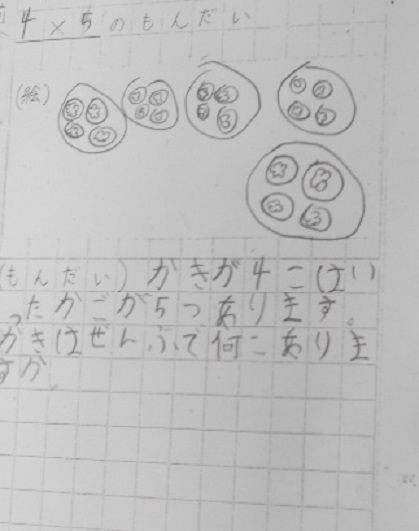 4×5のもんだい
(絵)
(もんだい)かきが4こはい
ったかごが5つあります。
かきはぜんぶで何こありま
すか。